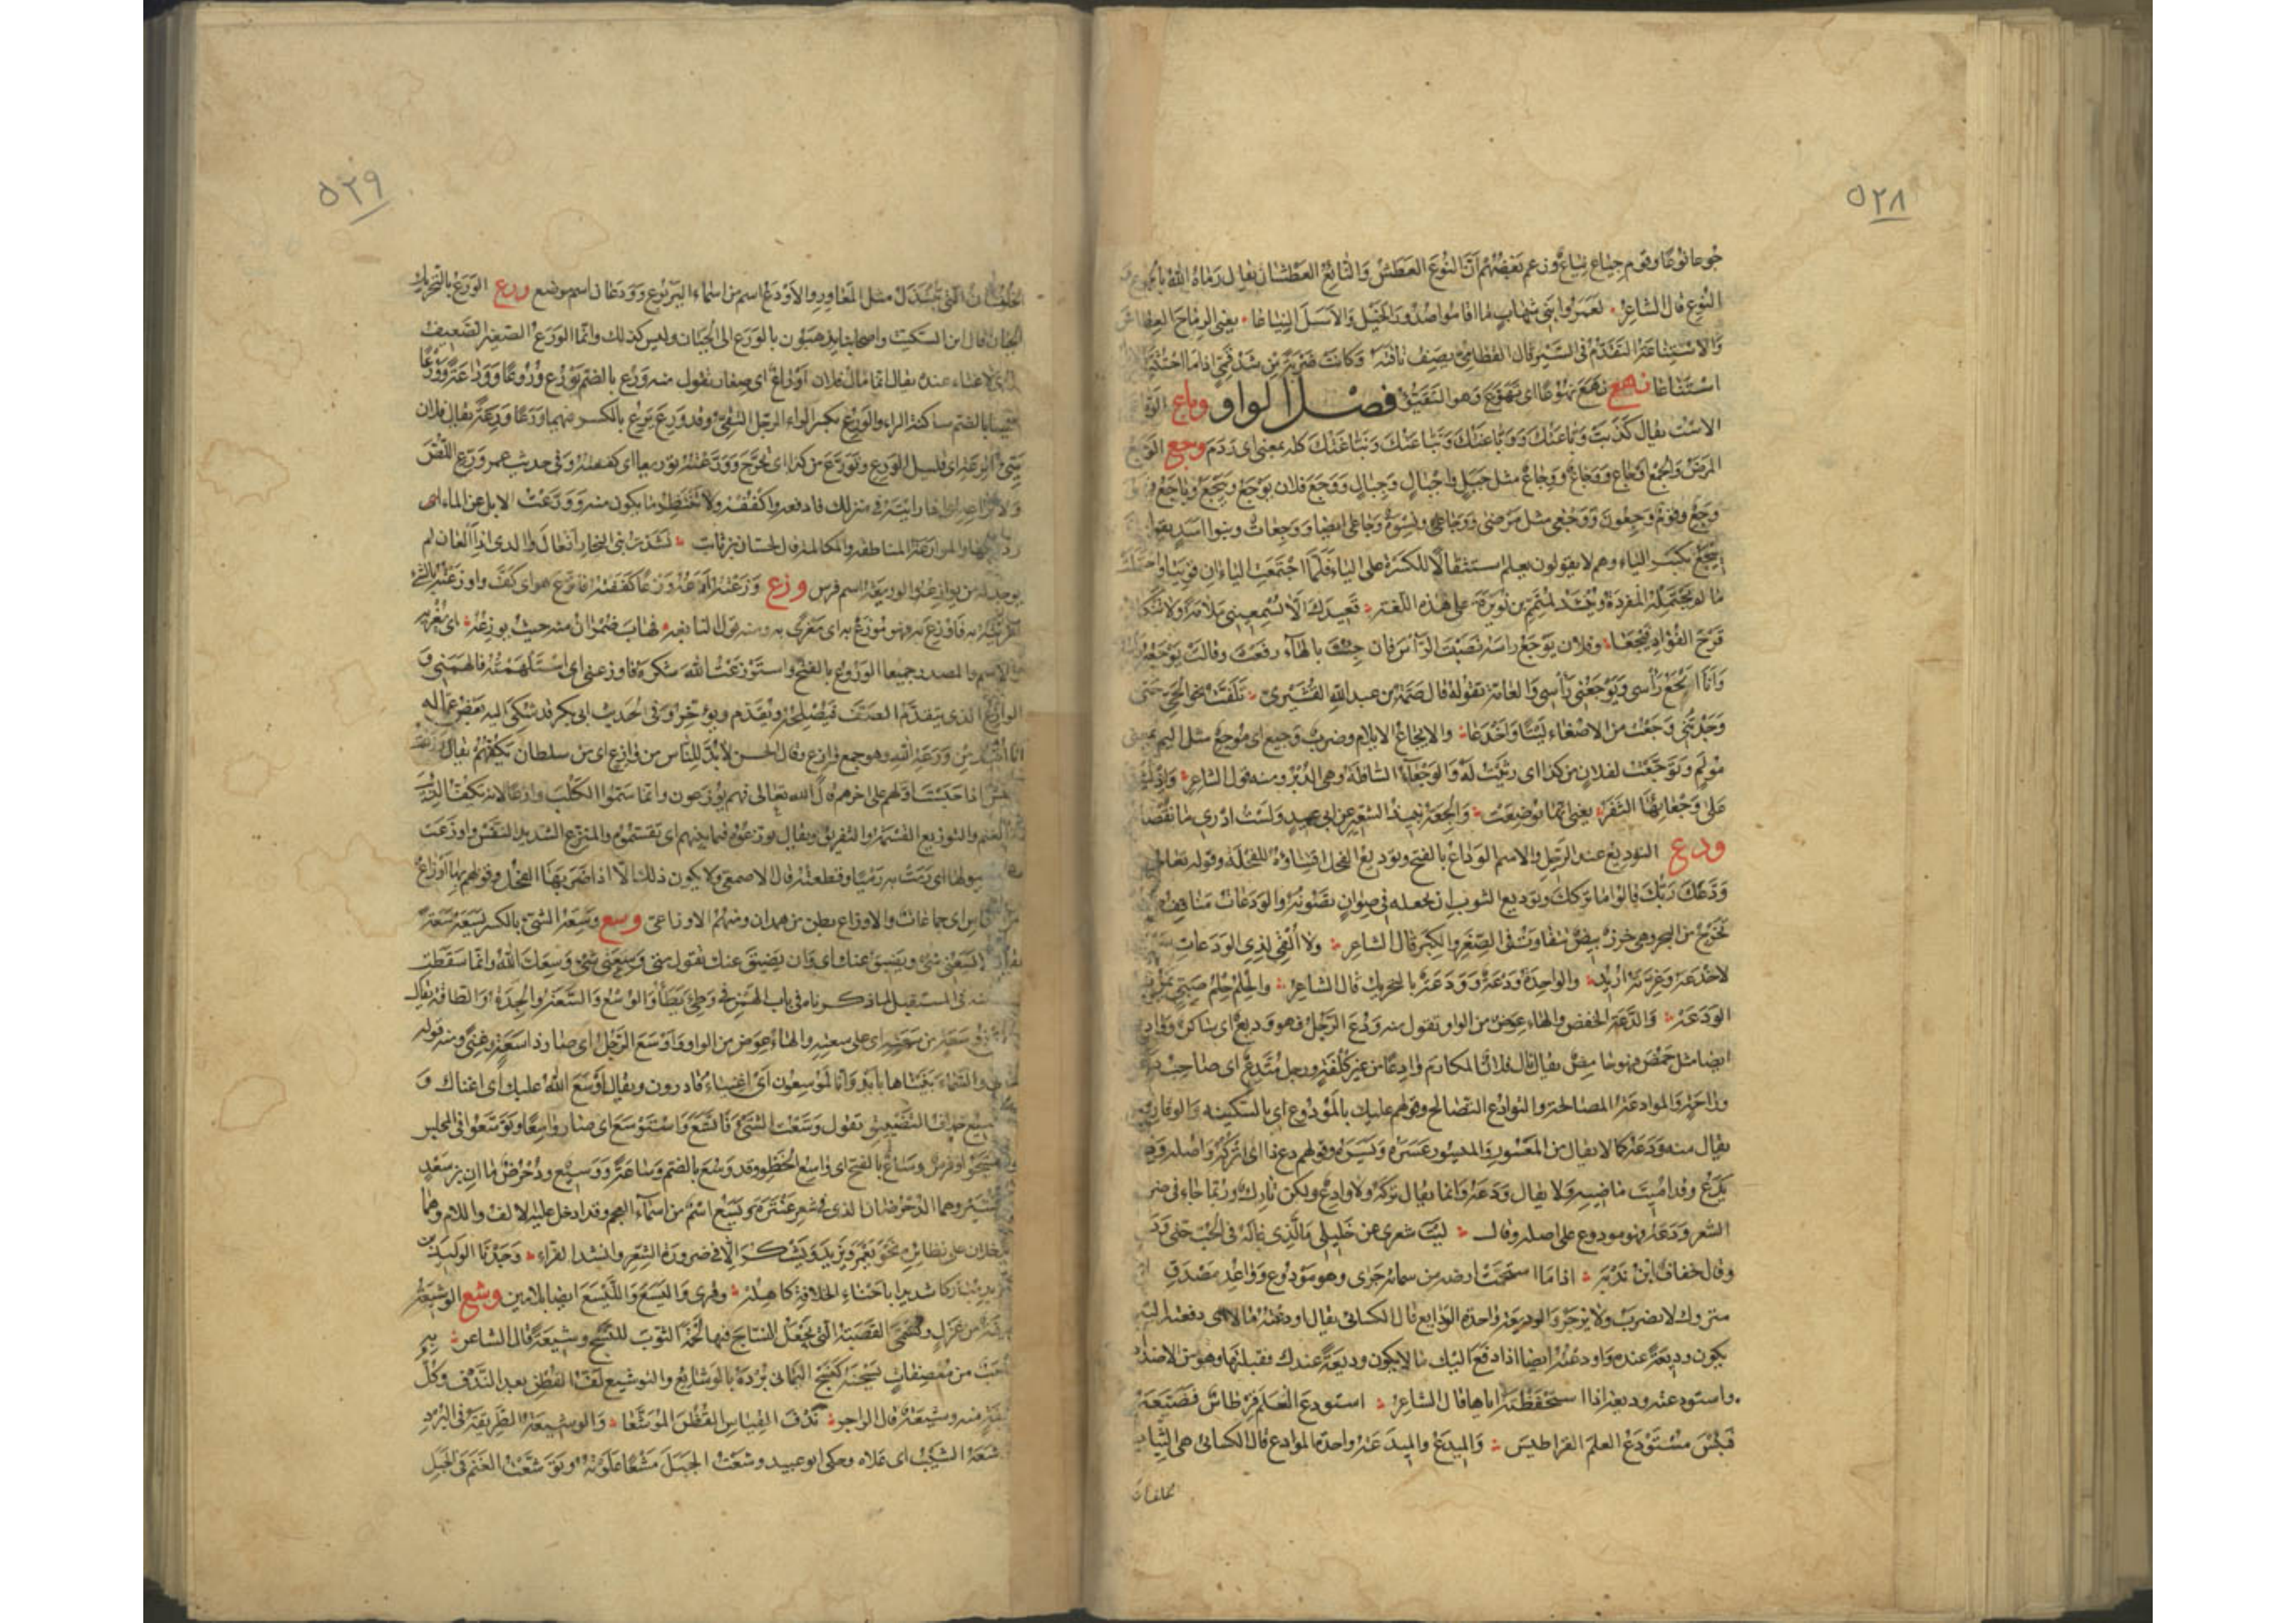 ٥٢٨
جُوعا نُوعًا وقوم جياع نياع وزعم بعضهم أنّ النوع العطش والنائع العطشان يقال رماه الله بالجوع و
النوع قال الشاعر لعمر بني شهاب ما أقاموا صدور الخيل والأسل النياعا يعني الرماح العطاش
والاستناعة التقدم في السير قال القطامي يصف ناقته وكانت ضربة من شدقمي اذا ما احتثت
استناعا نهع نهع نهوعا اى تهوع وهو التقيؤ فصل الواو وباع
الاست يقال كذبت وباعتك ووباعتك ونباعتك ونباغتك كله بمعنى اى ردم وجع الوجع
المرض والجمع اوجاع ووجاع مثل جبل واجبال وجبال ووجع فلان يوجع وييجع وياجع فهو
وجع وقوم وجعون ووجعى مثل مرضى ووجاعى ونسوة وجاعى ايضا ووجعات وبنوا اسد يقولون
ييجع بكسر الياء وهم لا يقولون يعلم استثقالا للكسرة على الياء فلما اجتمعت الياءان قويتا واحتملت
ما لم تحتمله المفردة وينشد لمتمم بن نويرة على هذه اللغة قعيدك ألا تسمعيني ملامة ولا تنكئي
قرح الفؤاد فييجعا وفلان يوجع راسه نصبت الرأس فان جئت بالهاء رفعت وقلت يوجعه
وانا ايجع رأسي ويوجعني رأسي والعامة تقوله قال صمة بن عبد الله القشيري تلفت نحو الحي حتى
وجدتني وجعت من الاصغاء ليتا واخدعا والايجاع الايلام وضرب وجيع اى موجع مثل اليم بمعنى
مؤلم وتوجعت لفلان من كذا اى رثيت له والوجعاء السافلة وهي الدبر ومنه قول الشاعر
على وجعائها الثفر يعني انها بوضعت والجعة نبيذ الشعير عن ابي عبيد ولست ادري ما نقصانه
ودع التوديع عند الرحيل والاسم الوداع بالفتح وتوديع الفحل اقتناؤه للفحلة وقوله تعالى
ودعك ربك قالوا ما تركك وتوديع الثوب ان تجعله في صوان يصونه والودعات مناقيف
تخرج من البحر وهي خرز بيض تتفاوت في الصغر والكبر قال الشاعر ولا ألقي لذي الودعات
لاخدعه وغرته اريد والواحدة ودعة وودعة بالتحريك قال الشاعر والحلم حلم صبي يمرث
الودعه والدعة الخفض والهاء عوض من الواو تقول منه ودع الرجل فهو وديع اى ساكن ووادع
ايضا مثل حمض فهو حامض يقال نال فلان المكارم وادعا من غير كلفة ورجل متدع اى صاحب دعة
وراحة والموادعة المصالحة والتوادع التصالح وقولهم عليك بالمودوع اى بالسكينة والوقار
يقال منه ودعه كما لا يقال من المعسور والميسور عسره ويسره وقولهم دع ذا اى اتركه واصله ودع
يدع وقد اميت ماضيه ولا يقال ودعه وانما يقال تركه ولا وادع ولكن تارك وربما جاء في ضرورة
الشعر ودعه فهو مودوع على اصله وقال ليت شعري عن خليلي ما الذي غاله في الحب حتى ودعه
وقال خفاف ابن ندبة اذا ما استحمت ارضه من سمائه جرى وهو مودوع وواعد مصدق
متروك لا يضرب ولا يزجر والوديعة واحدة الودايع قال الكسائي يقال اودعته مالا اى دفعته اليه
يكون وديعة عنده واودعته ايضا اذا دفع اليك مالا ليكون وديعة عندك فقبلتها وهو من الاضداد
واستودعته وديعة اذا استحفظته اياها قال الشاعر استودع العلم قرطاس فضيعه
فبئس مستودع العلم القراطيس والميدع والميدعة واحدة الموادع قال الكسائي هي الثياب
خلقان
٥٢٩
الخلقان التي تبتذل مثل المعاوز والاودع اسم من اسماء اليربوع وودعان اسم موضع ورع الورع بالتحريك
الجبان قال ابن السكيت واصحابنا يذهبون بالورع الى الجبان وليس كذلك وانما الورع الصغير الضعيف
الذي لا غناء عنده يقال انما مال فلان اوراع اى صغار تقول منه ورع بالضم يورع وروعا ووراعة وورعا
ايضا بالضم ساكنة الراء والورع بكسر الراء الرجل التقي وقد ورع يرع بالكسر فيهما ورعا ورعة يقال فلان
سيئ الرعة اى قليل الورع وتورع من كذا اى تحرج وورعته توريعا اى كففته وفي حديث عمر ورع اللص
ولا تراع اى اذا رايته في منزلك فادفعه واكففه ولا تنتظر ما يكون منه وورعت الابل عن الماء اى
رددتها والموارعة المناطقة والمكالمة قال حسان بن ثابت نشدت بني النجار افعال والدي اذا العان لم
يوجد له من يوارعه والوريعة اسم فرس وزع وزعته ازعه وزعا كففته فاتزع هو اى كف واوزعته بالشئ
اغريته به فاوزع به فهو موزع به اى مغرى به ومنه قول النابغة فهاب ضمران منه حيث يوزعه اى يغريه
والاسم والمصدر جميعا الوزوع بالفتح واستوزعت الله شكره فاوزعني اى استلهمته فالهمني و
الوازع الذي يتقدم الصف فيصلحه ويقدم ويؤخر وفي الحديث ابي بكر قد شكي اليه بعض عماله
انا اقيد من وزعة الله وهو جمع وازع وقال الحسن لا بد للناس من وازع اى من سلطان يكفهم يقال وزعت
الجيش اذا حبست اولهم على اخرهم قال الله تعالى فهم يوزعون وانما سموا الكلب وازعا لانه يكف الذئب
عن الغنم والتوزيع القسمة والتفريق ويقال توزعوه فيما بينهم اى تقسموه والمتزع الشديد النفس واوزعت
الناقة ببولها اى رمت به رميا وقطعته قال الاصمعي ولا يكون ذلك الا اذا ضربها الفحل وقولهم بها اوزاع
من الناس اى جماعات والاوزاع بطن من همدان ومنهم الاوزاعي وسع وسعه الشئ بالكسر يسعه سعة
يقال لا يسعني شئ ويضيق عنك اى وان يضيق عنك تقول متى وسعني شئ وسعك الله وانما سقطت
منه في المستقبل لما ذكرناه في باب الهمز في وطئ يطأ والوسع والسعة الجدة والطاقة يقال
لينفق ذو سعة من سعته اى على سعته والهاء عوض من الواو واوسع الرجل اى صار ذا سعة وغنى ومنه قوله
تعالى والسماء بنيناها بايد وانا لموسعون اى اغنياء قادرون ويقال اوسع الله عليك اى اغناك و
التوسيع خلاف التضييق تقول وسعت الشئ فاتسع واستوسع اى صار واسعا وتوسعوا في المجلس
اى تفسحوا وفرس وساع بالفتح اى واسع الخطو وقد وسع بالضم وساعة ووسيع ودحرض ماان بن سعد
قشير وهما الدحرضان الذي في شعر عنترة ويسع اسم من اسماء العجم وقد ادخل عليه الالف واللام وهما
يدخلان على نظائره نحو يعمر ويزيد ويشكر الا في ضرورة الشعر وانشد الفراء وجدنا الوليد بن
اليزيد مباركا شديدا باحناء الخلافة كاهله وقرئ واليسع والليسع ايضا بلامين وشع الوشيعة
لفيفة من غزل وتسمى القصبة التي يجعل النساج فيها لحمة الثوب للنسج وشيعة قال الشاعر به
ملعب من معصفات نسجنه كنسج اليماني برده بالوشائع والتوشيع لف القطن بعد الندف وكل
لفيفة منه وشيعة قال الراجز ندف القياس القطن الموشعا والوشيعة الطريقة في البرد
وشعه الشيب اى علاه وحكى ابو عبيد وشعت الجبل مشعا علوته وتوشعت الغنم في الجبل